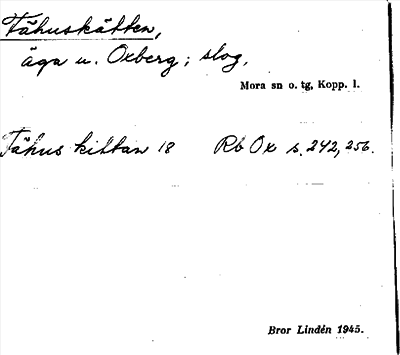 Tåhuskätten,
äga u. Oxberg; slog.
Mora sn o. tg, Kopp. l.
Tåhus kittan 18 Rb Ox s. 242, 256.
Bror Lindén 1945.